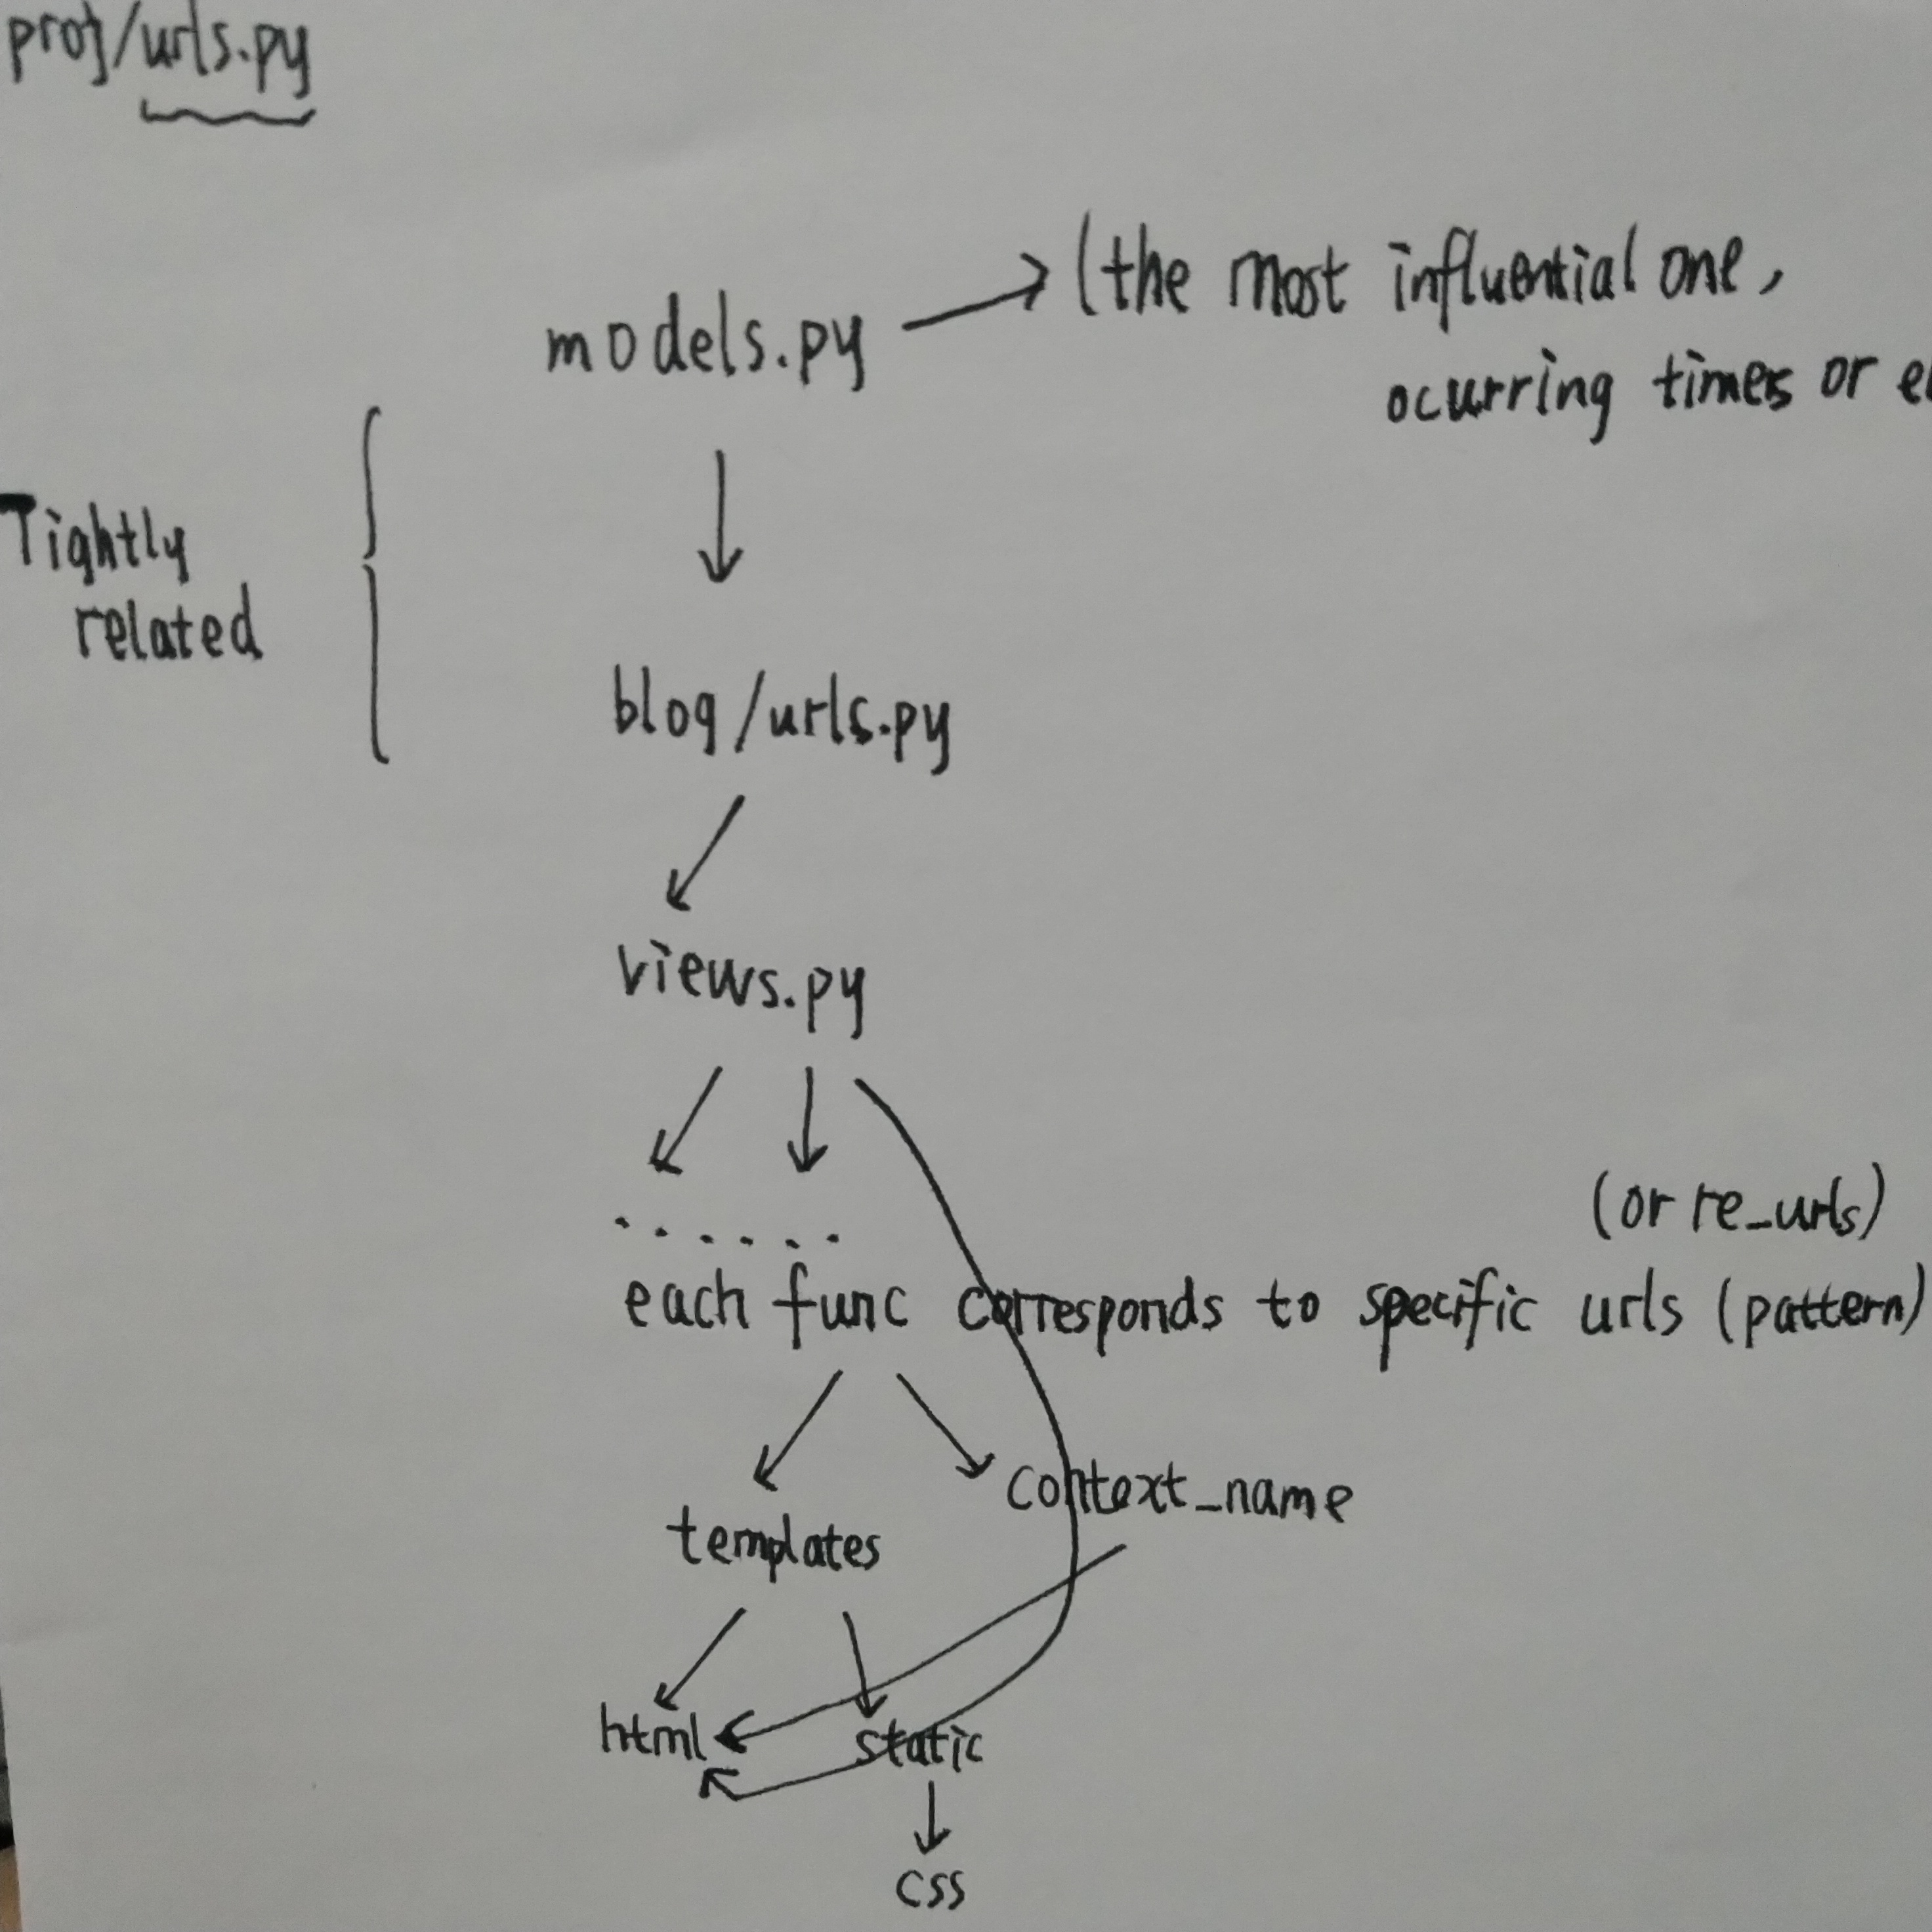 proj/urls.py
models.py → (the most influential one,
ocurring times or
Tightly
related
blog/urls.py
views.py
......
(or re_urls)
each func corresponds to specific urls (pattern)
context_name
templates
html
static
css